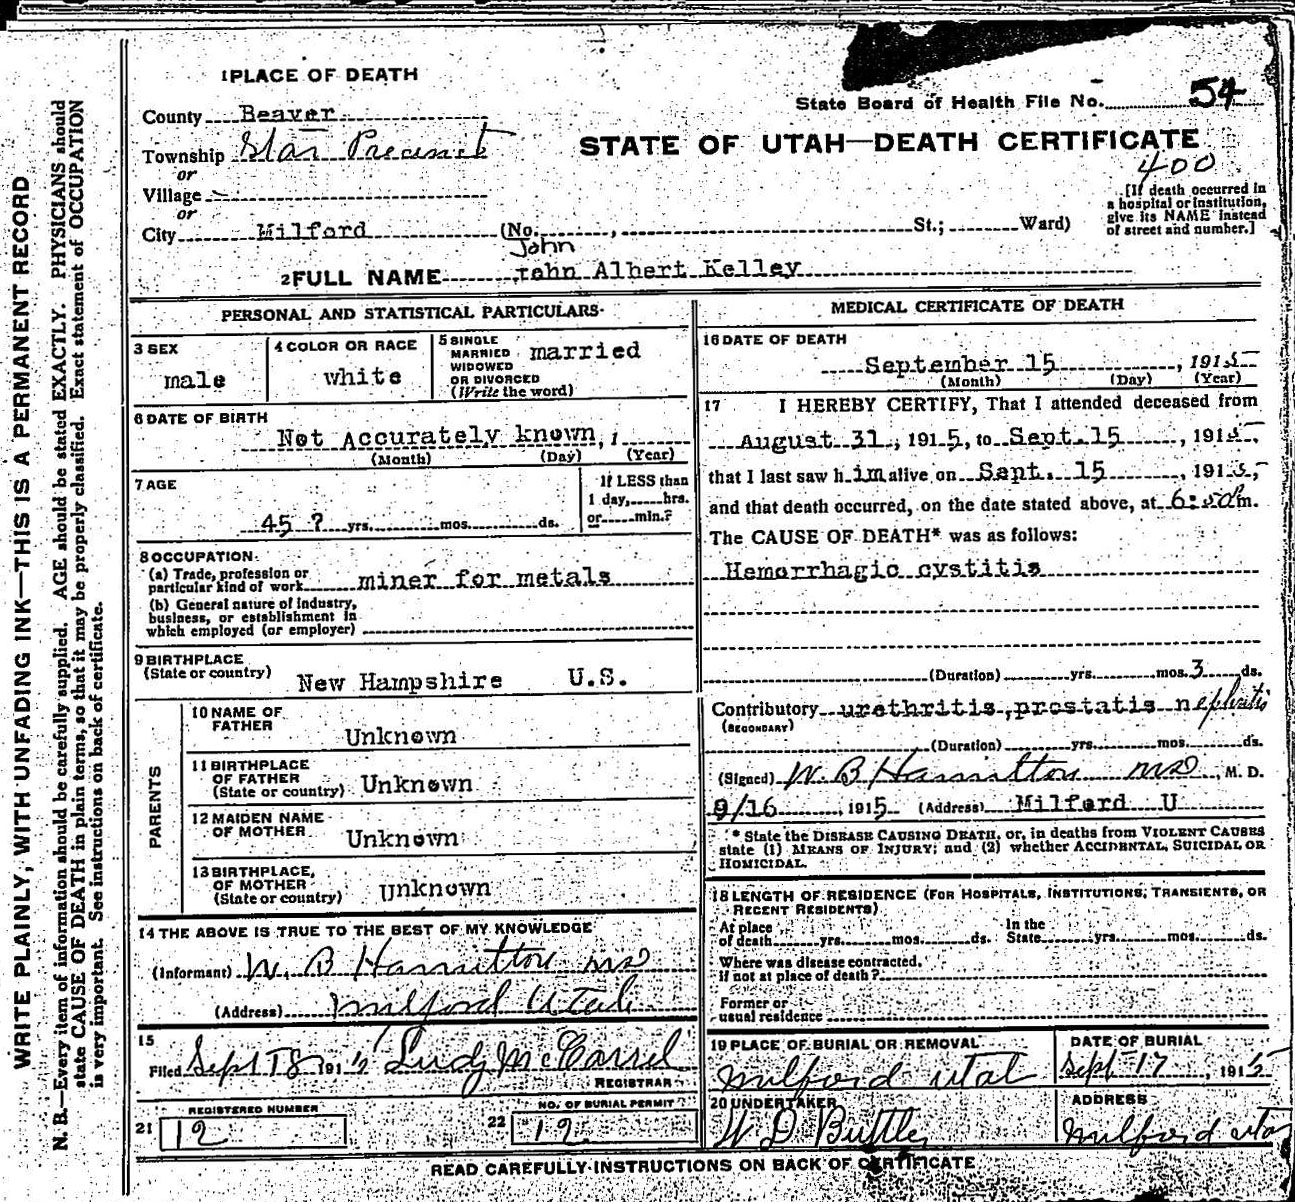 WRITE PLAINLY, WITH UNFADING INK—THIS IS A PERMANENT RECORD
N. B.—Every item of information should be carefully supplied. AGE should be stated EXACTLY. PHYSICIANS should
state CAUSE OF DEATH in plain terms, so that it may be properly classified. Exact statement of OCCUPATION
is very important. See instructions on back of certificate.
1 PLACE OF DEATH
State Board of Health File No. 54
County Beaver
STATE OF UTAH—DEATH CERTIFICATE
Township Star Precinct
400
or
Village
or
City Milford (No. , St.; Ward)
[If death occurred in
a hospital or institution,
give its NAME instead
of street and number.]
John
2 FULL NAME rohn Albert Kelley
PERSONAL AND STATISTICAL PARTICULARS
3 SEX
male
4 COLOR OR RACE
white
5 SINGLE
MARRIED
WIDOWED
OR DIVORCED
(Write the word)
married
6 DATE OF BIRTH
Not Accurately known, 1
(Month) (Day) (Year)
7 AGE
45 ? yrs. mos. ds.
If LESS than
1 day, hrs.
or min.?
8 OCCUPATION
(a) Trade, profession or
particular kind of work miner for metals
(b) General nature of industry,
business, or establishment in
which employed (or employer)
9 BIRTHPLACE
(State or country) New Hampshire U.S.
PARENTS
10 NAME OF
FATHER
Unknown
11 BIRTHPLACE
OF FATHER
(State or country) Unknown
12 MAIDEN NAME
OF MOTHER
Unknown
13 BIRTHPLACE,
OF MOTHER
(State or country) Unknown
14 THE ABOVE IS TRUE TO THE BEST OF MY KNOWLEDGE
(Informant) W. B Hamilton MD
(Address) Milford Utah
15
Filed Sept 18 191 Lucy McGarrel
REGISTRAR
REGISTERED NUMBER
21 12
NO. OF BURIAL PERMIT
22 12
MEDICAL CERTIFICATE OF DEATH
16 DATE OF DEATH
September 15 , 1915
(Month) (Day) (Year)
17 I HEREBY CERTIFY, That I attended deceased from
August 31, 1915, to Sept. 15 , 1915,
that I last saw him alive on Sept. 15 , 1915,
and that death occurred, on the date stated above, at 6:50 Pm.
The CAUSE OF DEATH* was as follows:
Hemorrhagic cystitis
(Duration) yrs. mos. 3 ds.
Contributory urethritis, prostatis nephritis
(SECONDARY)
(Duration) yrs. mos. ds.
(Signed) W. B Hamilton MD , M. D.
9/16 , 1915 (Address) Milford U
* State the DISEASE CAUSING DEATH, or, in deaths from VIOLENT CAUSES
state (1) MEANS OF INJURY; and (2) whether ACCIDENTAL, SUICIDAL OR
HOMICIDAL.
18 LENGTH OF RESIDENCE (FOR HOSPITALS, INSTITUTIONS, TRANSIENTS, OR
RECENT RESIDENTS)
At place
of death yrs. mos. ds.
In the
State yrs. mos. ds.
Where was disease contracted,
if not at place of death?
Former or
usual residence
19 PLACE OF BURIAL OR REMOVAL
Milford Utah
DATE OF BURIAL
Sept 17 , 1915
20 UNDERTAKER
W D Buttler
ADDRESS
Milford Utah
READ CAREFULLY INSTRUCTIONS ON BACK OF CERTIFICATE